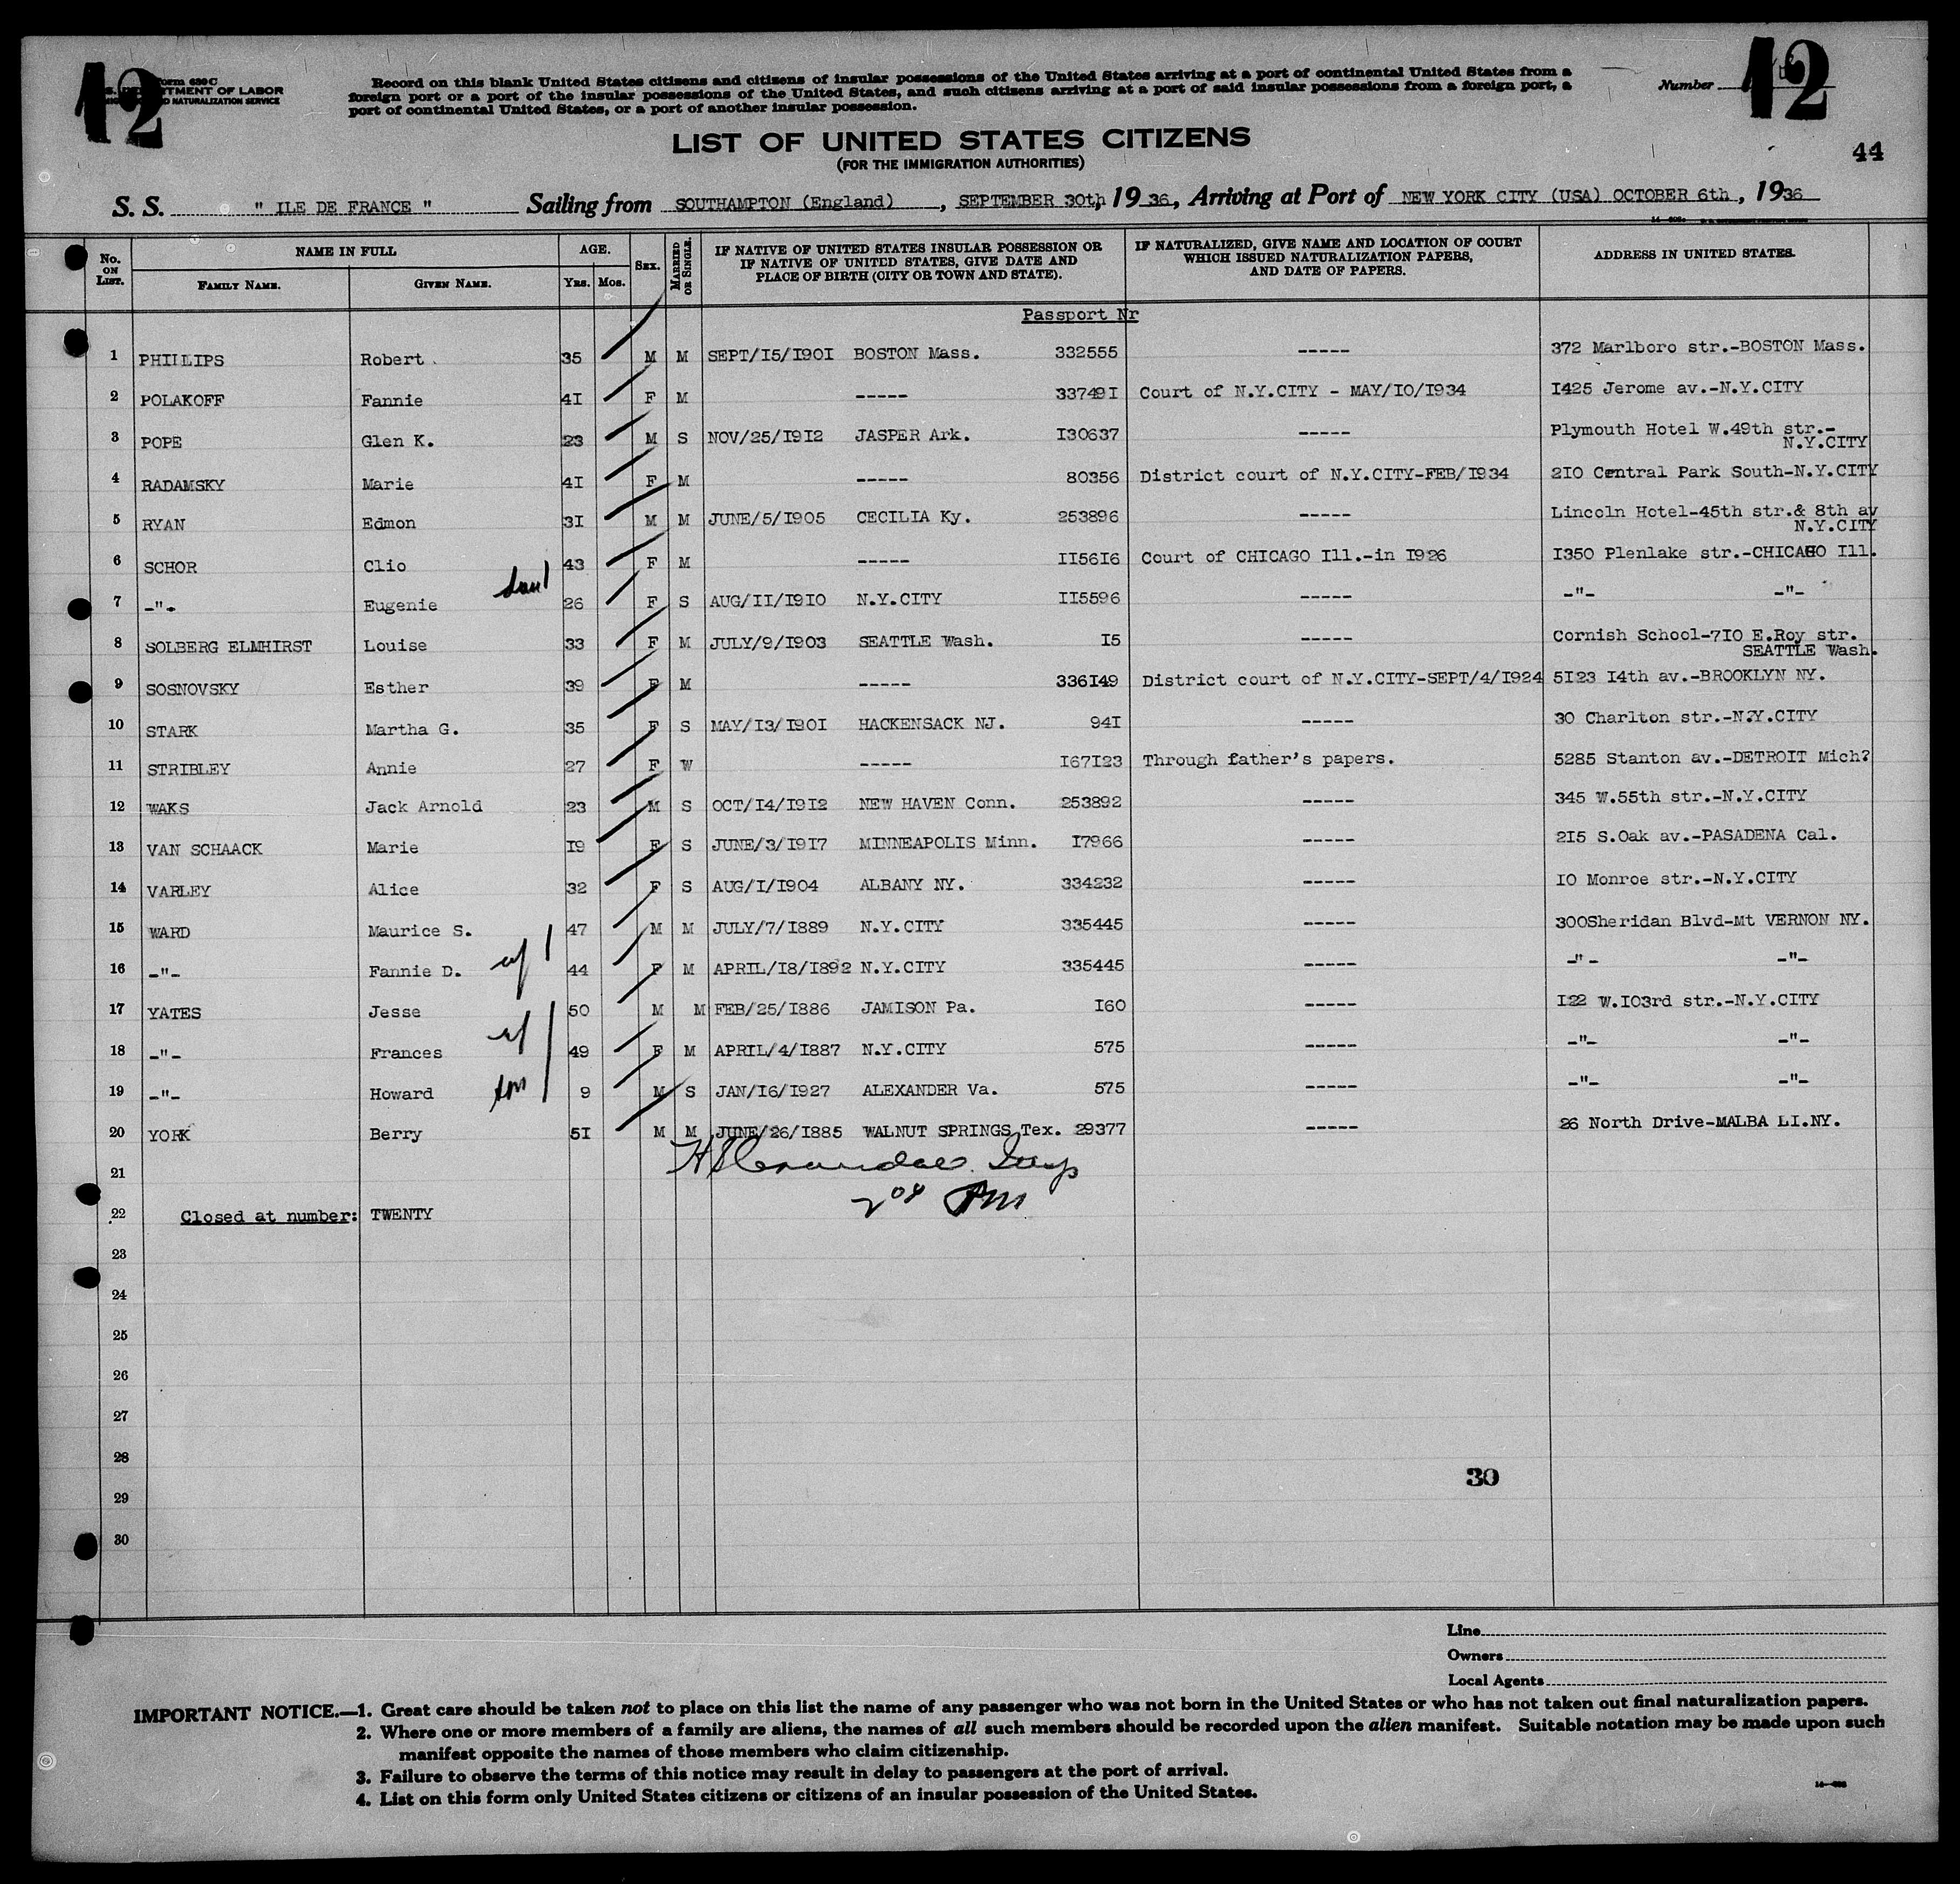 12
Form 630 C
DEPARTMENT OF LABOR
NATURALIZATION SERVICE
Record on this blank United States citizens and citizens of insular possessions of the United States arriving at a port of continental United States from a
foreign port or a port of the insular possessions of the United States, and such citizens arriving at a port of said insular possessions from a foreign port, a
port of continental United States, or a port of another insular possession.
Number 12
44
LIST OF UNITED STATES CITIZENS
(FOR THE IMMIGRATION AUTHORITIES)
S. S. " ILE DE FRANCE " Sailing from SOUTHAMPTON (England), SEPTEMBER 30th, 1936, Arriving at Port of NEW YORK CITY (USA) OCTOBER 6th, 1936
No. ON LIST. NAME IN FULL FAMILY NAME. GIVEN NAME. AGE. YRS. MOS. SEX. MARRIED OR SINGLE. IF NATIVE OF UNITED STATES INSULAR POSSESSION OR IF NATIVE OF UNITED STATES, GIVE DATE AND PLACE OF BIRTH (CITY OR TOWN AND STATE). IF NATURALIZED, GIVE NAME AND LOCATION OF COURT WHICH ISSUED NATURALIZATION PAPERS, AND DATE OF PAPERS. ADDRESS IN UNITED STATES.
Passport Nr
1 PHILLIPS Robert 35 M M SEPT/I5/I90I BOSTON Mass. 332555 ----- 372 Marlboro str.-BOSTON Mass.
2 POLAKOFF Fannie 4I F M ----- 33749I Court of N.Y.CITY - MAY/IO/I934 I425 Jerome av.-N.Y.CITY
3 POPE Glen K. 23 M S NOV/25/I9I2 JASPER Ark. I30637 ----- Plymouth Hotel W.49th str.-
N.Y.CITY
4 RADAMSKY Marie 4I F M ----- 80356 District court of N.Y.CITY-FEB/I934 2IO Central Park South-N.Y.CITY
5 RYAN Edmon 3I M M JUNE/5/I905 CECILIA Ky. 253896 ----- Lincoln Hotel-45th str.& 8th av
N.Y.CITY
6 SCHOR Clio 43 F M ----- II56I6 Court of CHICAGO Ill.-in I926 I350 Plenlake str.-CHICAGO Ill.
7 -"- Eugenie 26 F S AUG/II/I9IO N.Y.CITY II5596 ----- -"- -"-
8 SOLBERG ELMHIRST Louise 33 F M JULY/9/I903 SEATTLE Wash. I5 ----- Cornish School-7IO E.Roy str.
SEATTLE Wash.
9 SOSNOVSKY Esther 39 F M ----- 336I49 District court of N.Y.CITY-SEPT/4/I924 5I23 I4th av.-BROOKLYN NY.
10 STARK Martha G. 35 F S MAY/I3/I90I HACKENSACK NJ. 94I ----- 30 Charlton str.-N.Y.CITY
11 STRIBLEY Annie 27 F W ----- I67I23 Through father's papers. 5285 Stanton av.-DETROIT Mich?
12 WAKS Jack Arnold 23 M S OCT/I4/I9I2 NEW HAVEN Conn. 253892 ----- 345 W.55th str.-N.Y.CITY
13 VAN SCHAACK Marie I9 F S JUNE/3/I9I7 MINNEAPOLIS Minn. I7966 ----- 2I5 S.Oak av.-PASADENA Cal.
14 VARLEY Alice 32 F S AUG/I/I904 ALBANY NY. 334232 ----- IO Monroe str.-N.Y.CITY
15 WARD Maurice S. 47 M M JULY/7/I889 N.Y.CITY 335445 ----- 300Sheridan Blvd-Mt VERNON NY.
16 -"- Fannie D. wf 44 F M APRIL/I8/I892 N.Y.CITY 335445 ----- -"- -"-
17 YATES Jesse 50 M M FEB/25/I886 JAMISON Pa. I60 ----- I22 W.I03rd str.-N.Y.CITY
18 -"- Frances wf 49 F M APRIL/4/I887 N.Y.CITY 575 ----- -"- -"-
19 -"- Howard son 9 M S JAN/I6/I927 ALEXANDER Va. 575 ----- -"- -"-
20 YORK Berry 5I M M JUNE/26/I885 WALNUT SPRINGS Tex. 29377 ----- 26 North Drive-MALBA LI.NY.
21
22 Closed at number: TWENTY
PM
23
24
25
26
27
28
30
29
30
Line
Owners
Local Agents
IMPORTANT NOTICE.—1. Great care should be taken not to place on this list the name of any passenger who was not born in the United States or who has not taken out final naturalization papers.
2. Where one or more members of a family are aliens, the names of all such members should be recorded upon the alien manifest. Suitable notation may be made upon such
manifest opposite the names of those members who claim citizenship.
3. Failure to observe the terms of this notice may result in delay to passengers at the port of arrival.
4. List on this form only United States citizens or citizens of an insular possession of the United States.